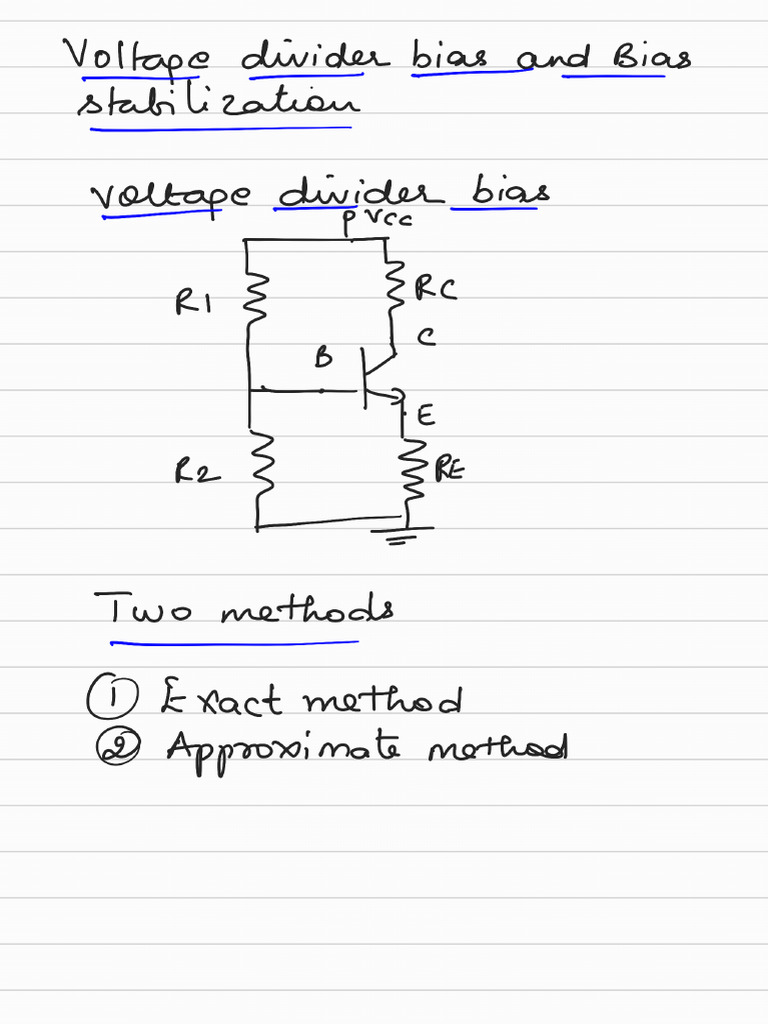 Voltage divider bias and Bias
stabilization
voltage divider bias
VCC
R1
RC
C
B
E
R2
RE
Two methods
① Exact method
② Approximate method